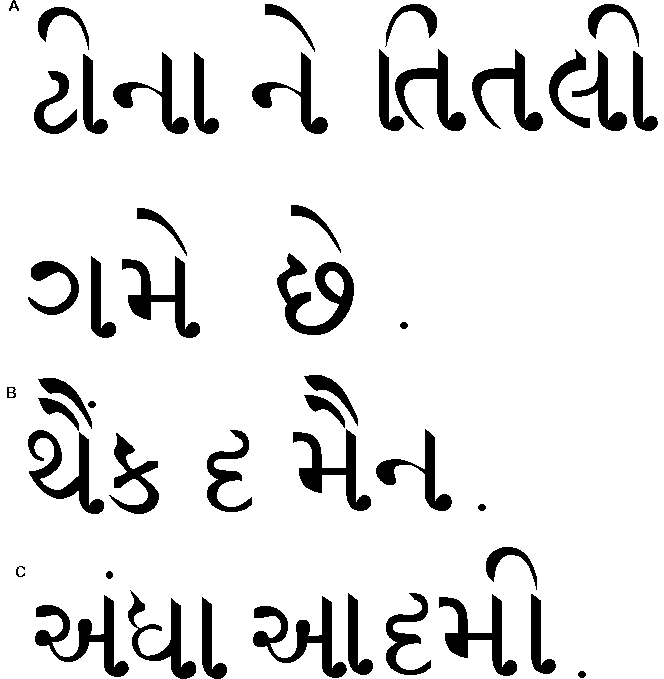 A ટીના ને તિતલી
ગમે છે .
B થૈંક દ મૈન .
C અંધા આદમી .